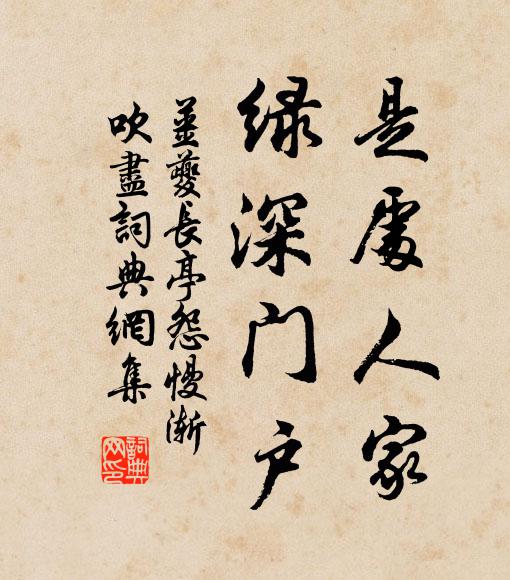 是處人家
綠深門户
姜夔長亭怨慢漸
吹盡詞典網集
詞典網印